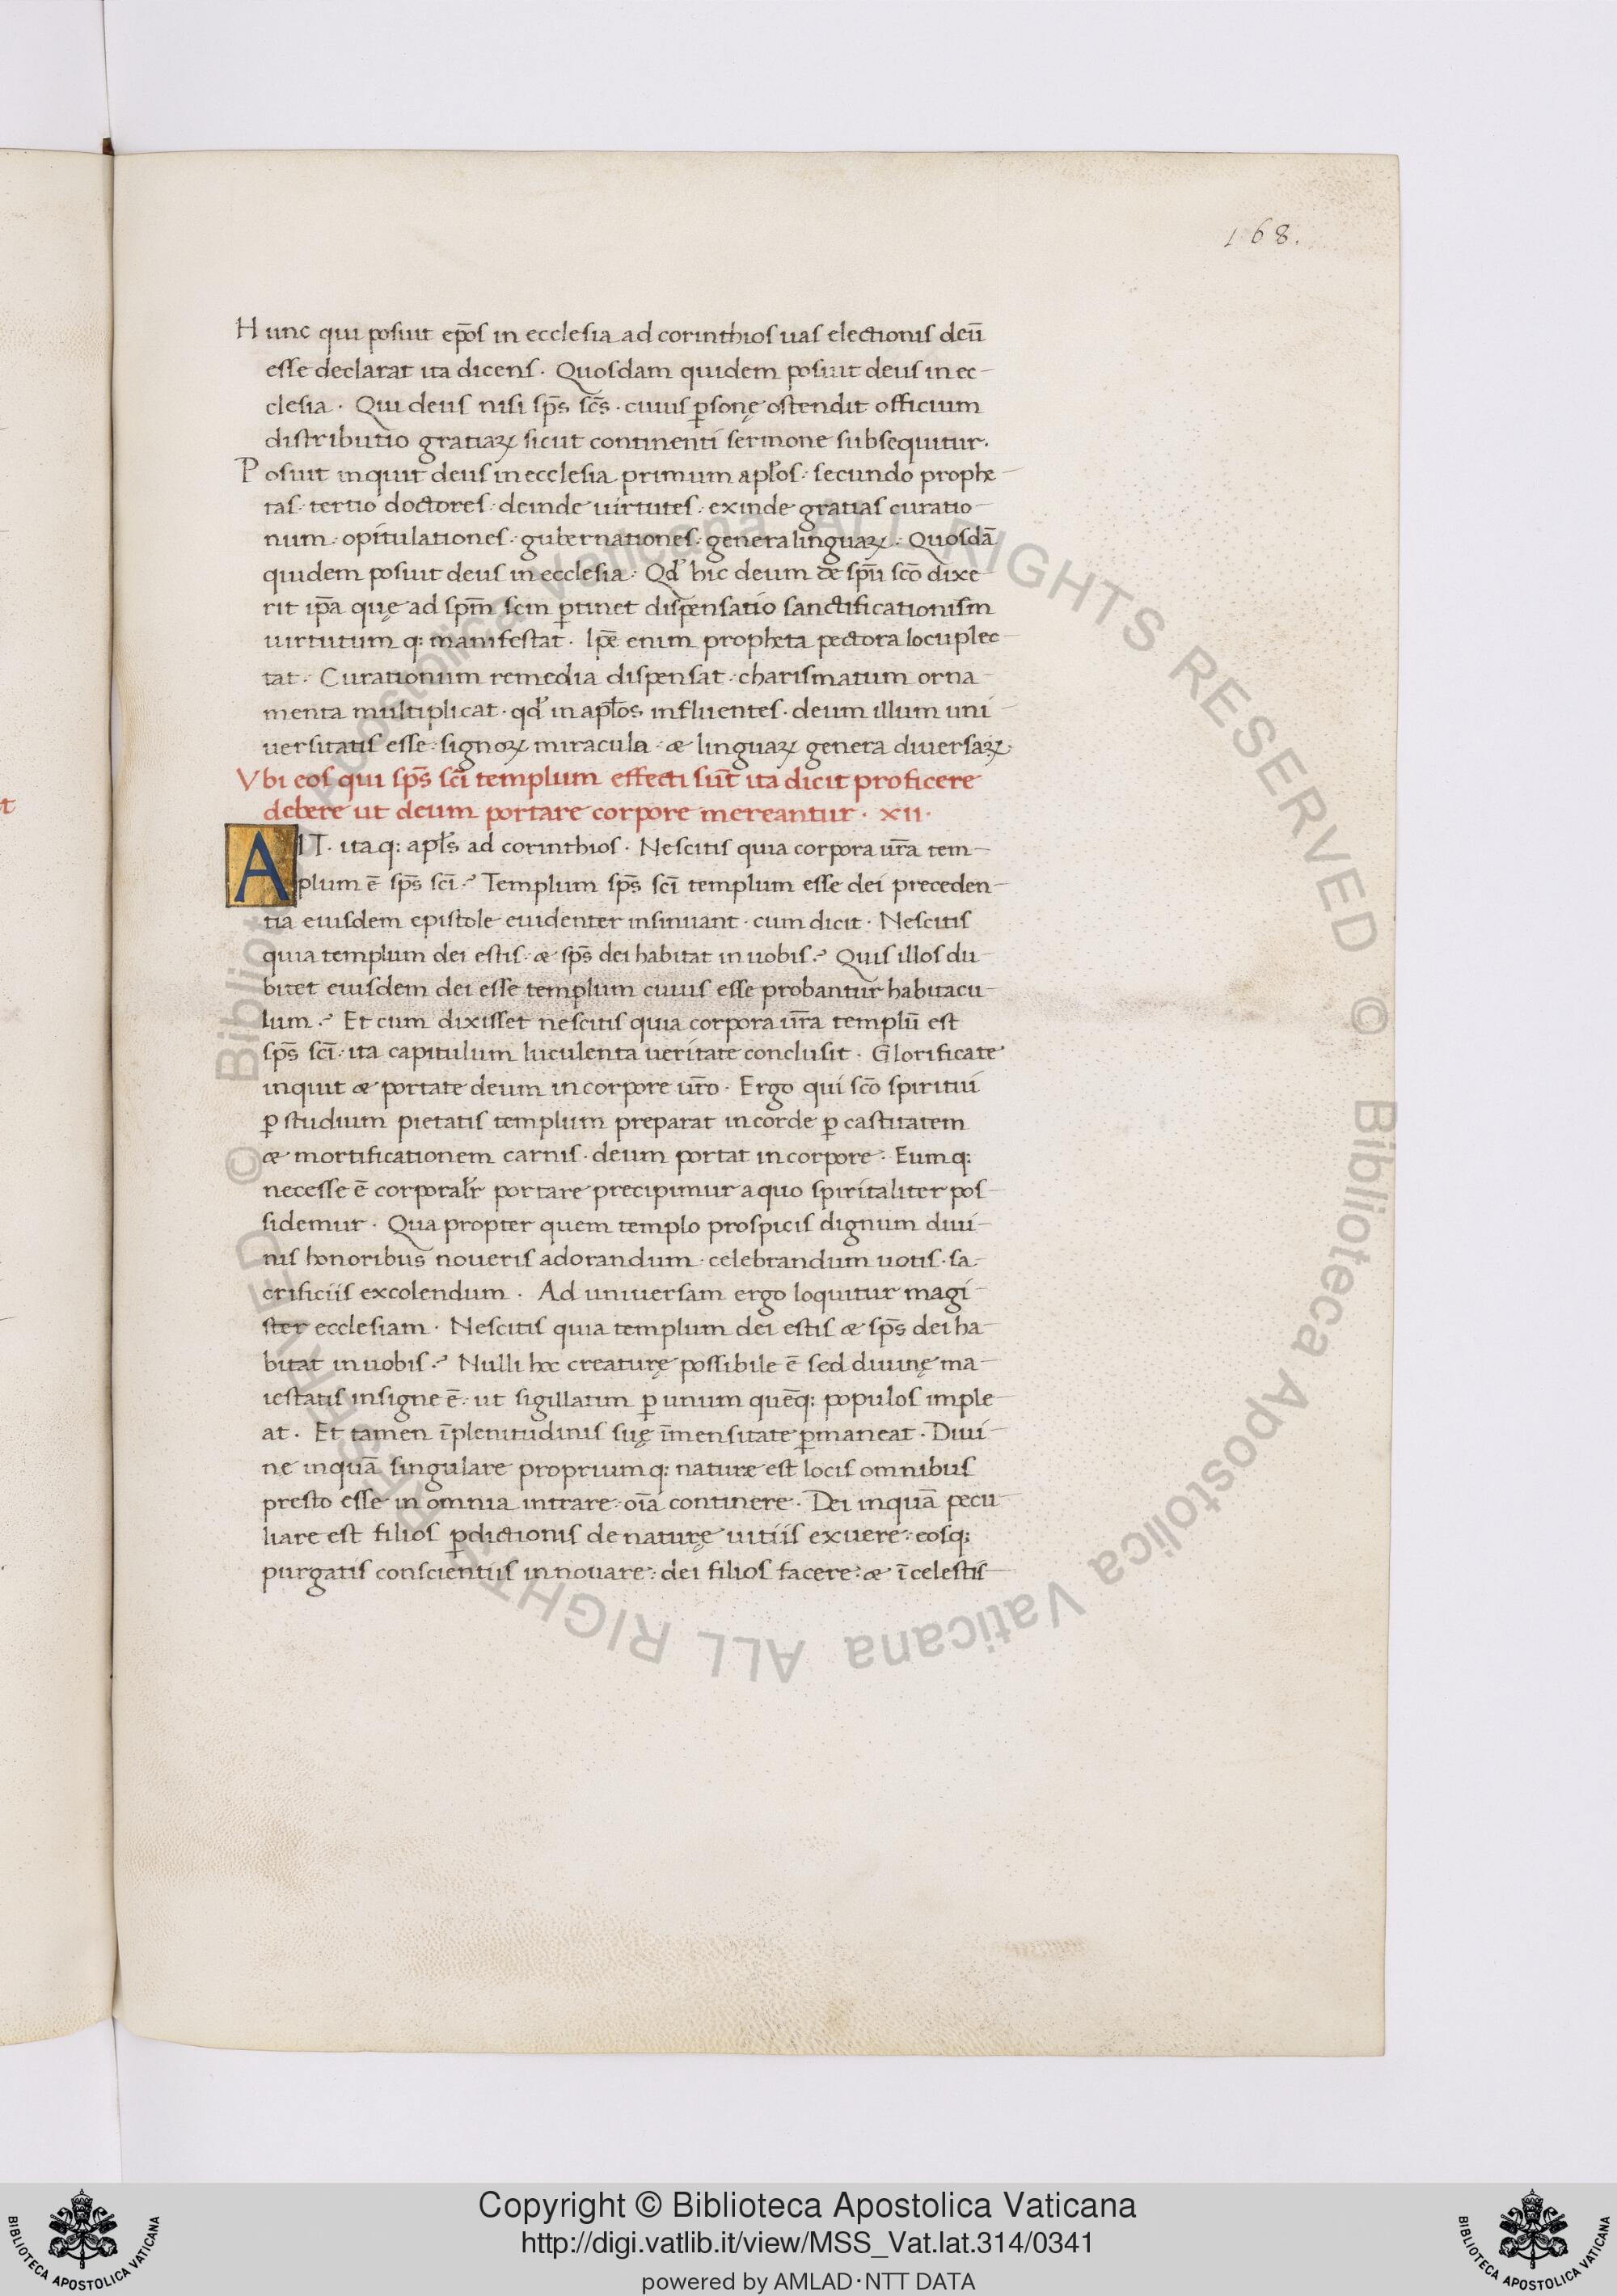 168.
Hunc qui posiuit ep̅os in ecclesia ad corinthios uas electionis deu̅
esse declarat ita dicens · Quosdam quidem posuit deus in ec-
clesia · Qui deus nisi sp̅s sc̅s · cuius ꝑsonę ostendit officium
distributio gratiaꝝ sicut continenti sermone subsequitur.
Posuit inquit deus in ecclesia primum apl̅os · secundo prophe-
tas · tertio doctores · deinde uirtutes · exinde gratias curatio-
num · opitulationes · gubernationes · genera linguaꝝ · Quosda̅
quidem posuit deus in ecclesia · Qd̓ hic deum de sp̅u sc̅o dixe-
rit ip̅a quę ad sp̅m scm ꝑtinet dispensatio sanctificationism
uirtutum q: manifestat · Ip̅e enim propheta pectora locuplec-
tat · Curationum remedia dispensat · charismatum orna-
menta multiplicat · qd̓ in apl̅os influentes · deum illum uni-
uersitatis esse · signoꝝ miracula · æ linguaꝝ genera diuersaꝝ·
Vbi eos qui sp̅s sc̅i templum effecti su̅t ita dicit proficere
debere ut deum portare corpore mereantur · xii·
AIT · itaq: apl̅s ad corinthios · Nescitis quia corpora ur̅a tem-
plum e̅ sp̅s sc̅i ·? Templum sp̅s sc̅i templum esse dei preceden-
tia eiusdem epistole euidenter insinuant · cum dicit · Nescitis
quia templum dei estis · æ sp̅s dei habitat in uobis ·? Quis illos du-
bitet eiusdem dei esse templum cuius esse probantur habitacu-
lum ·? Et cum dixisset nescitis quia corpora ur̅a templu̅ est
sp̅s sc̅i · ita capitulum luculenta ueritate conclusit · Glorificate
inquit æ portate deum in corpore ur̅o · Ergo qui sc̅o spiritui
ꝑ studium pietatis templum preparat in corde ꝑ castitatem
æ mortificationem carnis · deum portat in corpore · Eumq:
necesse e̅ corporal̅r portare precipimur a quo spiritaliter pos-
sidemur · Qua propter quem templo prospicis dignum diui-
nis honoribus noueris adorandum · celebrandum uotis · sa-
crificiis excolendum · Ad uniuersam ergo loquitur magi-
ster ecclesiam · Nescitis quia templum dei estis æ sp̅s dei ha-
bitat in uobis ·? Nulli hoc creaturę possibile e̅ sed diuinę ma-
iestatis insigne e̅ · ut sigillatim ꝑ unum que̅q: populos imple-
at · Et tamen i̅ plenitudinis suę i̅mensitate ꝑmaneat · Diui-
nę inqua̅ singulare propriumq: naturæ est locis omnibus
presto esse in omnia intrare · oi̅a continere · Dei inqua̅ pecu-
liare est filios ꝑdictionis de naturę uitiis exuere · eosq:
purgatis conscientiis innouare · dei filios facere · æ i̅ celestis-
t
© Biblioteca Apostolica Vaticana ALL RIGHTS RESERVED © Biblioteca Apostolica Vaticana ALL RIGHTS RESERVED
BIBLIOTECA APOSTOLICA VATICANA
Copyright © Biblioteca Apostolica Vaticana
http://digi.vatlib.it/view/MSS_Vat.lat.314/0341
powered by AMLAD·NTT DATA
BIBLIOTECA APOSTOLICA VATICANA